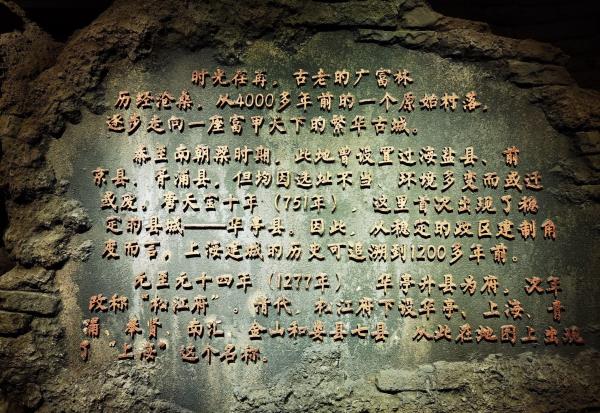 时光荏苒，古老的广富林
历经沧桑，从4000多年前的一个原始村落，
逐步走向一座富甲天下的繁华古城。
秦至南朝梁时期，此地曾设置过海盐县、前
京县、胥浦县，但均因选址不当，环境多变而或迁
或废，唐天宝十年（751年），这里首次出现了稳
定的县城——华亭县。因此，从稳定的政区建制角
度而言，上海建城的历史可追溯到1200多年前。
元至元十四年（1277年），华亭升县为府，次年
改称“松江府”。清代，松江府下设华亭、上海、青
浦、奉贤、南汇、金山和娄县七县，从此在地图上出现
了“上海”这个名称。